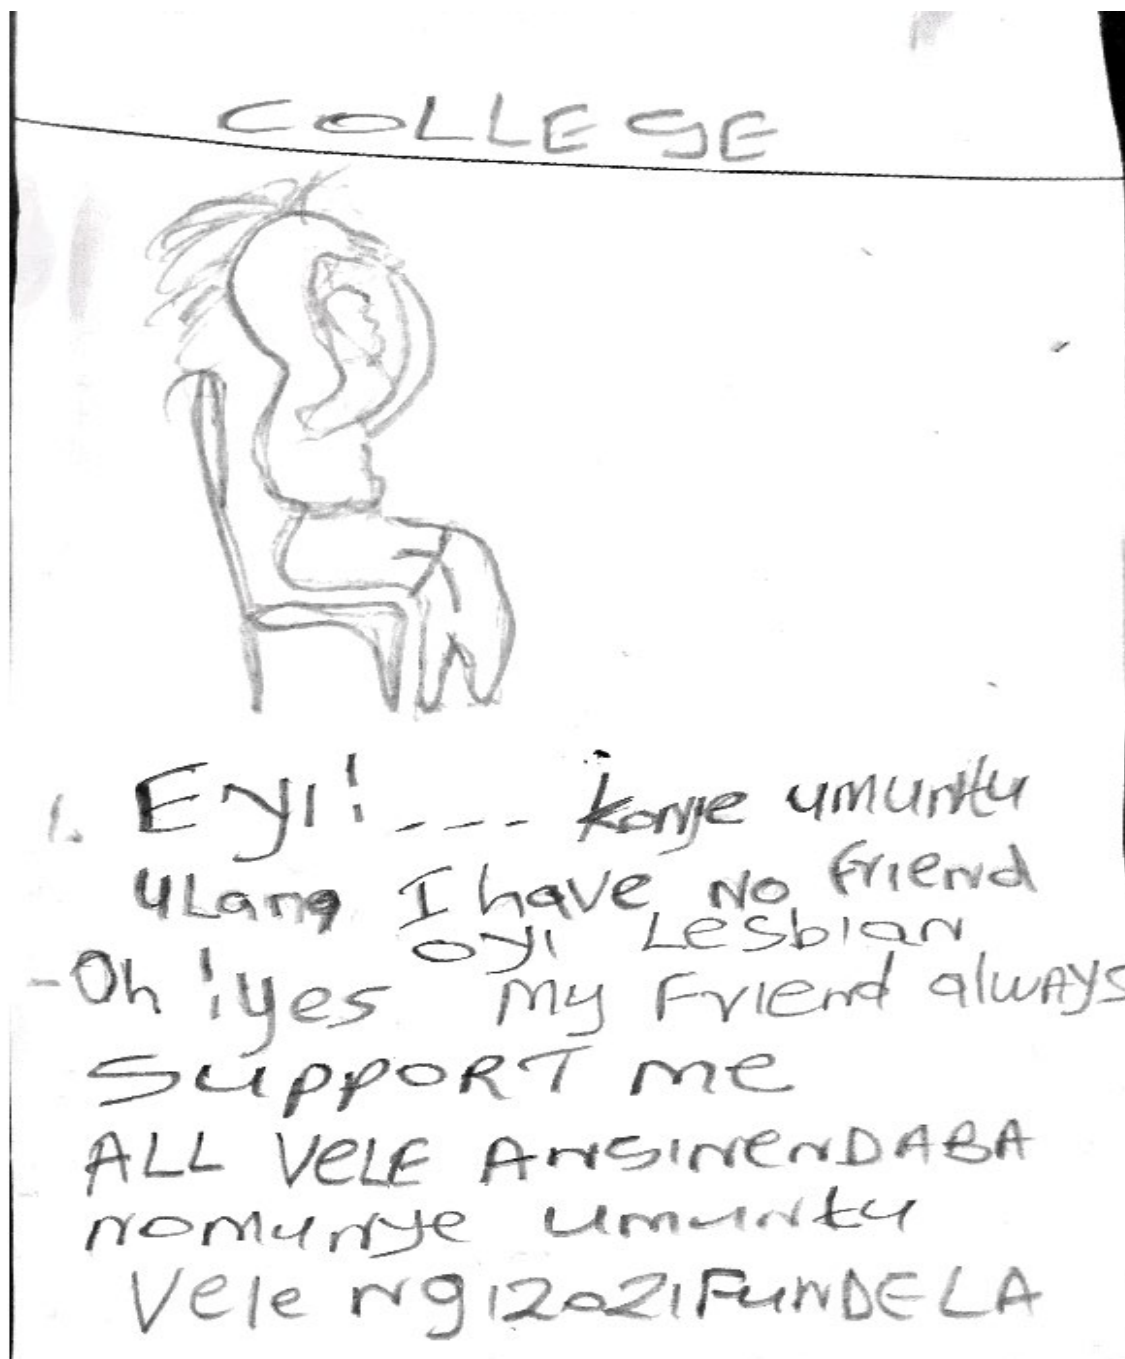 COLLEGE
1. Eyi! --- konje umuntu
ulana I have no friend
oyi Lesbian
- Oh! yes my Friend always
SUPPORT me
ALL VELE ANSINENDABA
nomunye umuntu
Vele ngizoziFUNDELA